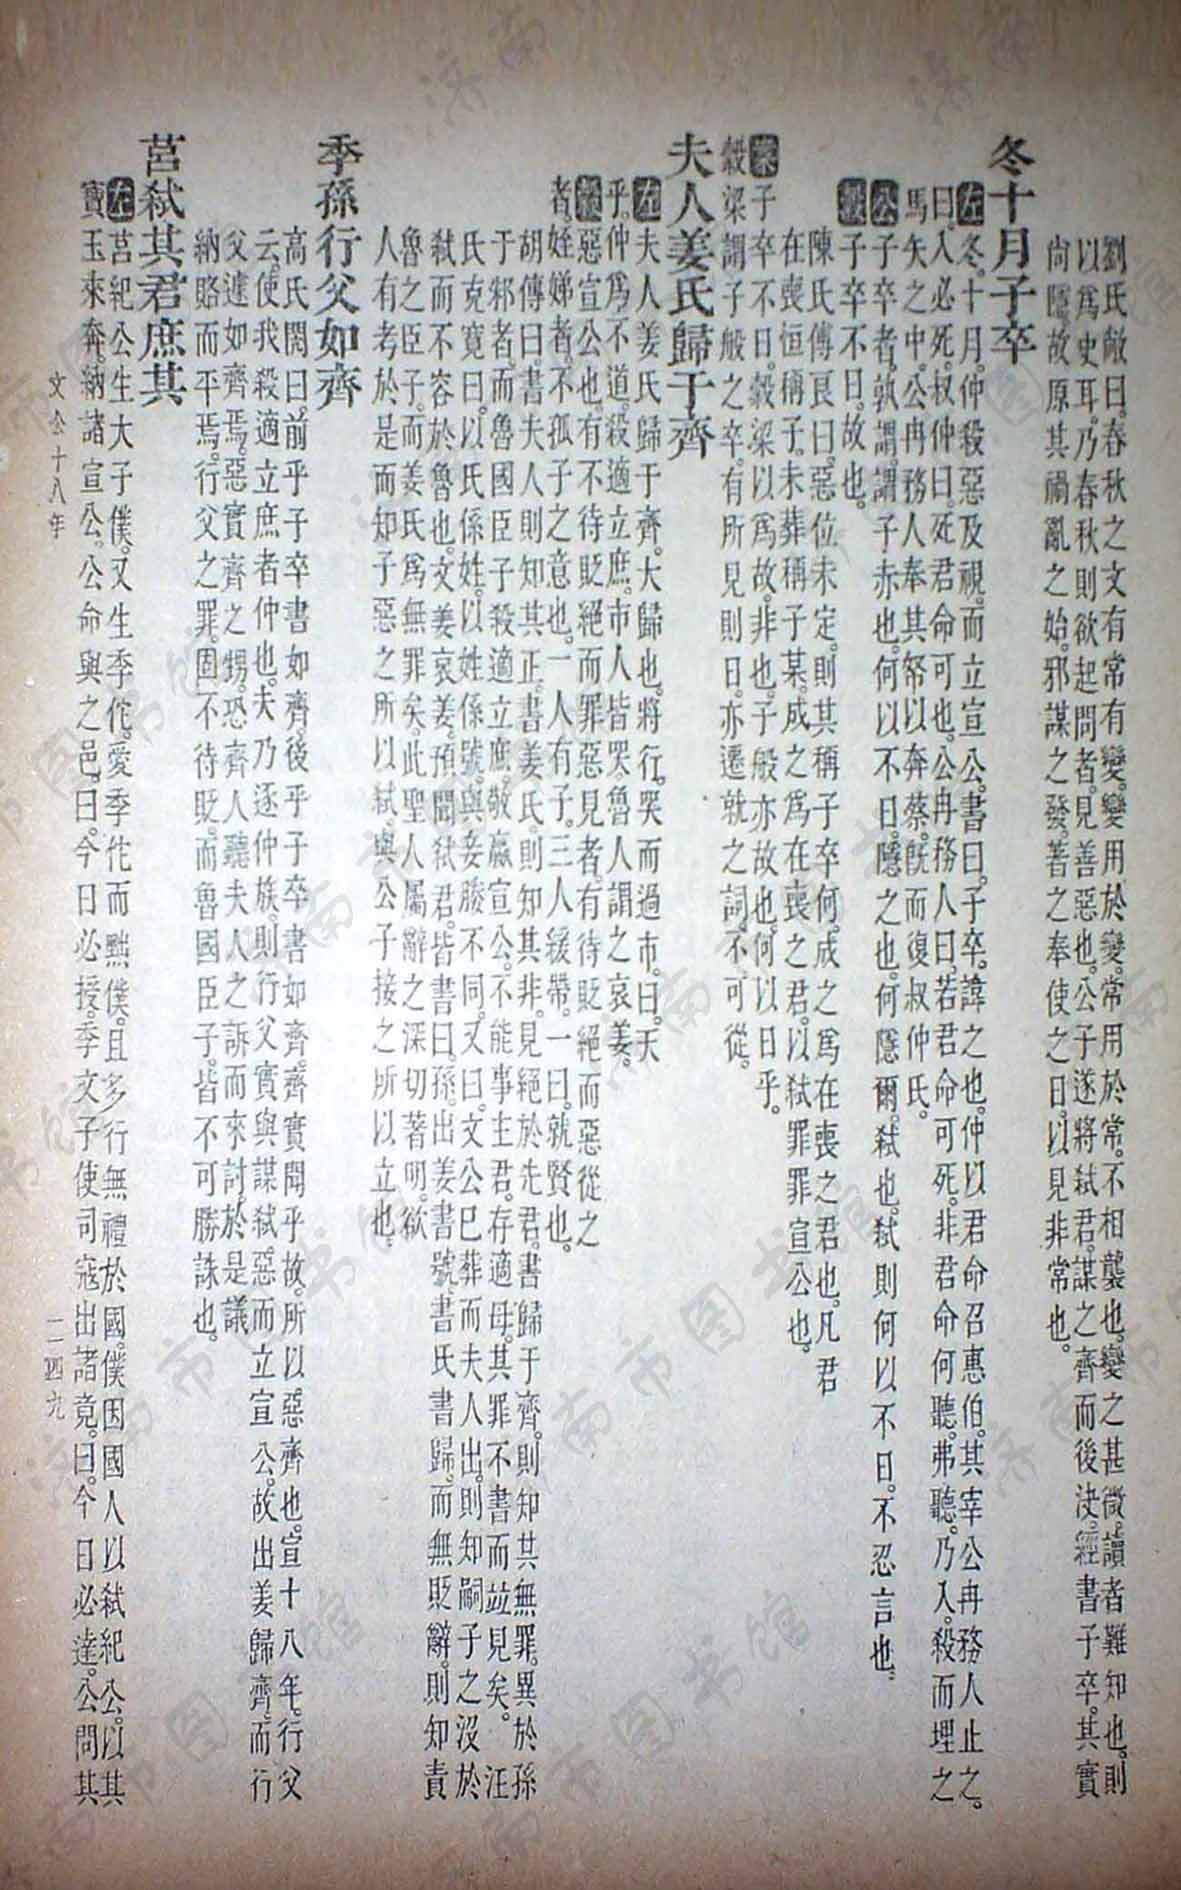 劉氏敞曰。春秋之文有常有變。變用於變。常用於常。不相襲也。變之甚微。讀者難知也。則
以爲史耳。乃春秋則欲起問者。見善惡也。公子遂將弒君。謀之齊而後決。經書子卒。其實
尙隱。故原其禍亂之始。邪謀之發。著之奉使之日。以見非常也。
冬十月子卒
左冬。十月。仲殺惡及視。而立宣公。書曰。子卒。諱之也。仲以君命召惠伯。其宰公冉務人止之。
曰。入必死。叔仲曰。死君命可也。公冉務人曰。若君命可死。非君命何聽。弗聽。乃入。殺而埋之
馬矢之中。公冉務人奉其帑以奔蔡。旣而復叔仲氏。
公子卒者。孰謂。謂子赤也。何以不日。隱之也。何隱爾。弒也。弒則何以不日。不忍言也。
穀子卒不日。故也。
陳氏傅良曰。惡位未定。則其稱子卒何。成之爲在喪之君也。凡君
在喪恒稱子。未葬稱子某。成之爲在喪之君。以弒罪罪宣公也。
案子卒不日。穀梁以爲故。非也。子般亦故也。何以日乎。
穀梁謂子般之卒。有所見則日。亦遷就之詞。不可從。
夫人姜氏歸于齊
左夫人姜氏歸于齊。大歸也。將行。哭而過市。曰。天
乎。仲爲不道。殺適立庶。市人皆哭。魯人謂之哀姜。
穀惡宣公也。有不待貶絕而罪惡見者。有待貶絕而惡從之
者。姪娣者。不孤子之意也。一人有子。三人緩帶。一曰。就賢也。
胡傳曰。書夫人。則知其正。書姜氏。則知其非見絕於先君。書歸于齊。則知其無罪。異於孫
于邾者。而魯國臣子殺適立庶。敬嬴宣公。不能事主君。存適母。其罪不書而並見矣。汪
氏克寬曰。以氏係姓。以姓係號。與妾媵不同。又曰。文公已葬而夫人出。則知嗣子之沒於
弒而不容於魯也。文姜哀姜。預聞弒君。皆書曰。孫。出姜書號。書氏書歸。而無貶辭。則知責
魯之臣子。而姜氏爲無罪矣。此聖人屬辭之深切著明。欲
人有考於是而知子惡之所以弒。與公子接之所以立也。
季孫行父如齊
高氏閌曰。前乎子卒書如齊。後乎子卒書如齊。齊實聞乎故。所以惡齊也。宣十八年。行父
云。使我殺適立庶者仲也。夫乃逐仲族。則行父實與謀弒惡而立宣公。故出姜歸齊。而行
父遽如齊焉。惡實齊之甥。恐齊人聽夫人之訴而來討。於是議
納賂而平焉。行父之罪。固不待貶。而魯國臣子。皆不可勝誅也。
莒弒其君庶其
左莒紀公生大子僕。又生季佗。愛季佗而黜僕。且多行無禮於國。僕因國人以弒紀公。以其
寶玉來奔。納諸宣公。公命與之邑。曰。今日必授。季文子使司寇出諸竟。曰。今日必達。公問其
文公十八年
一二四九
濟南市图书馆